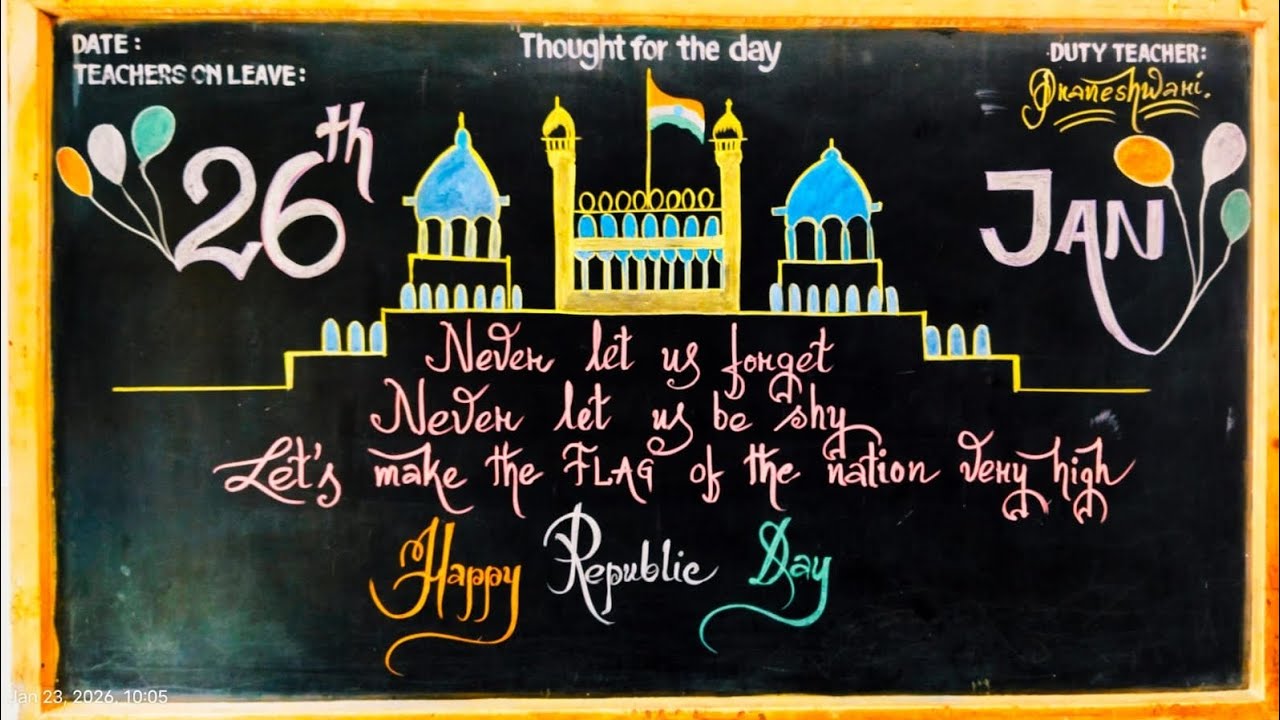 DATE :
TEACHERS ON LEAVE :
Thought for the day
DUTY TEACHER:
26th
JAN
Never let us forget
Never let us be shy
Let's make the FLAG of the nation very high
Happy Republic Day
Jan 23, 2026, 10:05